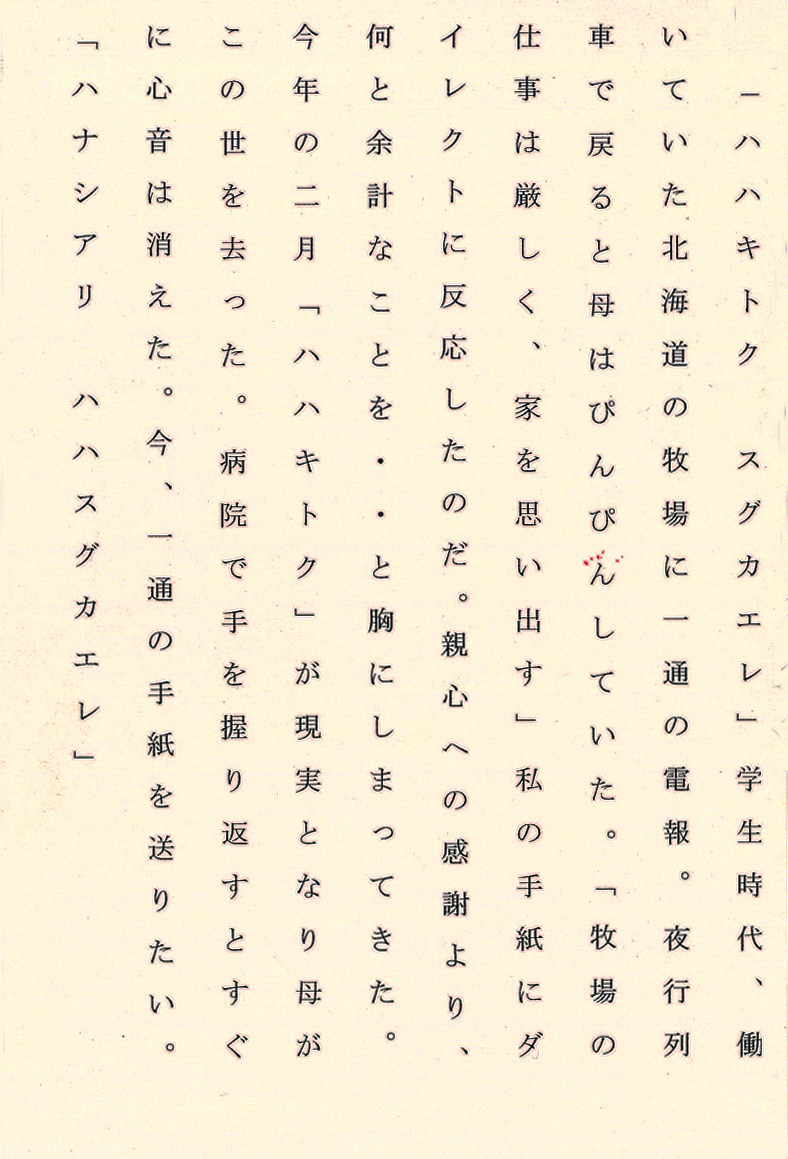 「ハハキトク　スグカエレ」学生時代、働
いていた北海道の牧場に一通の電報。夜行列
車で戻ると母はぴんぴんしていた。「牧場の
仕事は厳しく、家を思い出す」私の手紙にダ
イレクトに反応したのだ。親心への感謝より、
何と余計なことを・・と胸にしまってきた。
今年の二月「ハハキトク」が現実となり母が
この世を去った。病院で手を握り返すとすぐ
に心音は消えた。今、一通の手紙を送りたい。
「ハナシアリ　ハハスグカエレ」